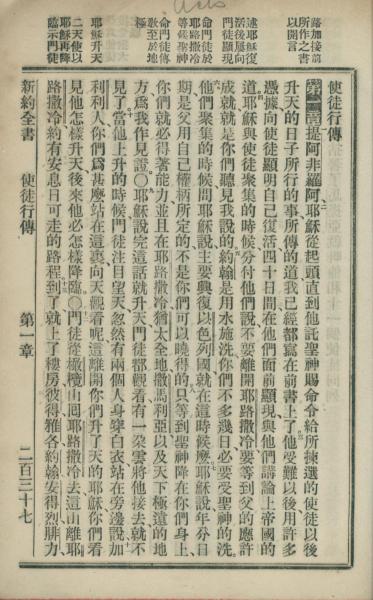 Acts
路加接前
所作之書
以開言
述耶穌復
活後屢向
門徒顯現
命門徒於
耶路撒冷
等候聖神
命門徒傳
教至於地
極
耶穌升天
二天使以
耶穌再降
臨示門徒
使徒行傳
提阿非羅阿耶穌從起頭直到他託聖神賜命令給所揀選的使徒以後
升天的日子所行的事所傳的道我已經都寫在前書上了他受難以後用許多
憑據向使徒顯明自己復活四十日間在他們面前顯現與他們講論上帝國的
道耶穌與使徒聚集的時候分付他們說不要離開耶路撒冷要等到父的應許
成就就是你們聽見我說的約翰是用水施洗你們不多幾日必要受聖神的洗
他們聚集的時候問耶穌說主要興復以色列國就在這時候麼耶穌說年分日
期是父用自己權柄所定的不是你們可以曉得的只等到聖神降在你們身上
你們就必得著能力並且在耶路撒冷猶太全地撒馬利亞以及天下極遠的地
方爲我作見證○耶穌說完這話就升天門徒都觀看有一朵雲將他接去就不
見了當他上升的時候門徒注目望天忽然有兩個人身穿白衣站在旁邊說加
利利人你們爲甚麼站在這裏向天觀看呢這離開你們升了天的耶穌你們看
見他怎樣升天後來他必怎樣降臨○門徒從橄欖山回耶路撒冷去這山離耶
路撒冷約有安息日可走的路程到了就上了樓房彼得雅各約翰安得烈腓力
新約全書 使徒行傳 第一章 二百三十七